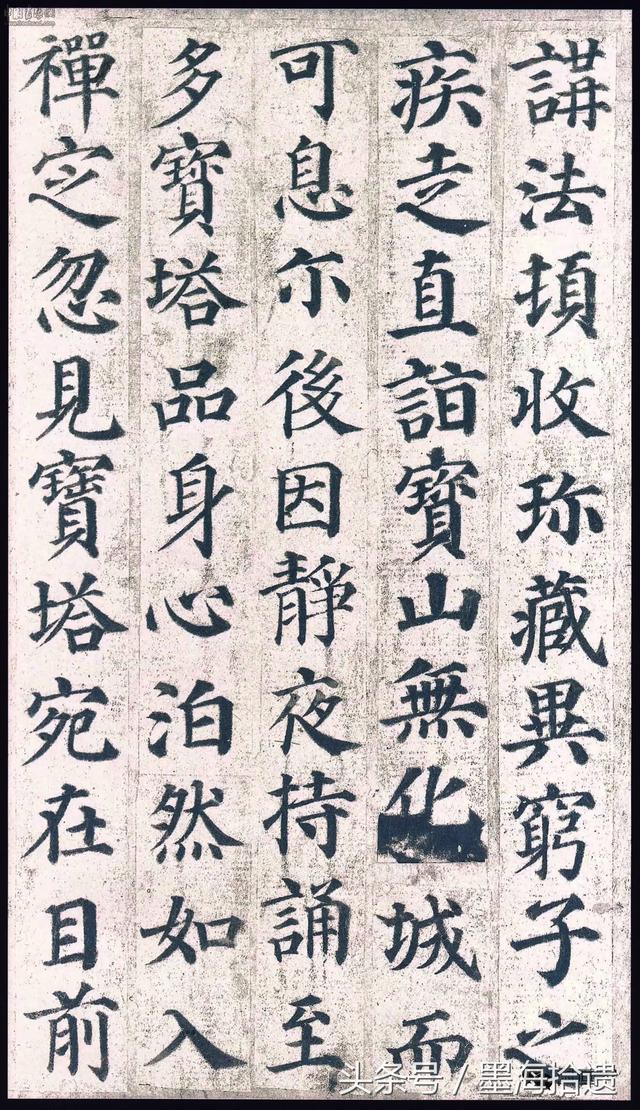 講法頓收珎藏異窮子之
疾走直詣寶山無化城而
可息尒後因靜夜持誦至
多寶塔品身心泊然如入
禪定忽見寶塔宛在目前
头条号 / 墨海拾遗